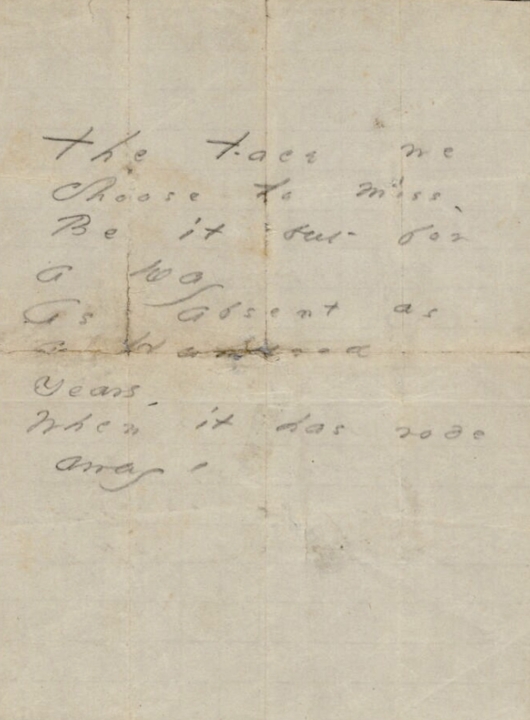 The Face we
choose to miss,
Be it but for
a Day
As absent as
a Hundred
Years,
When it has rode
away.